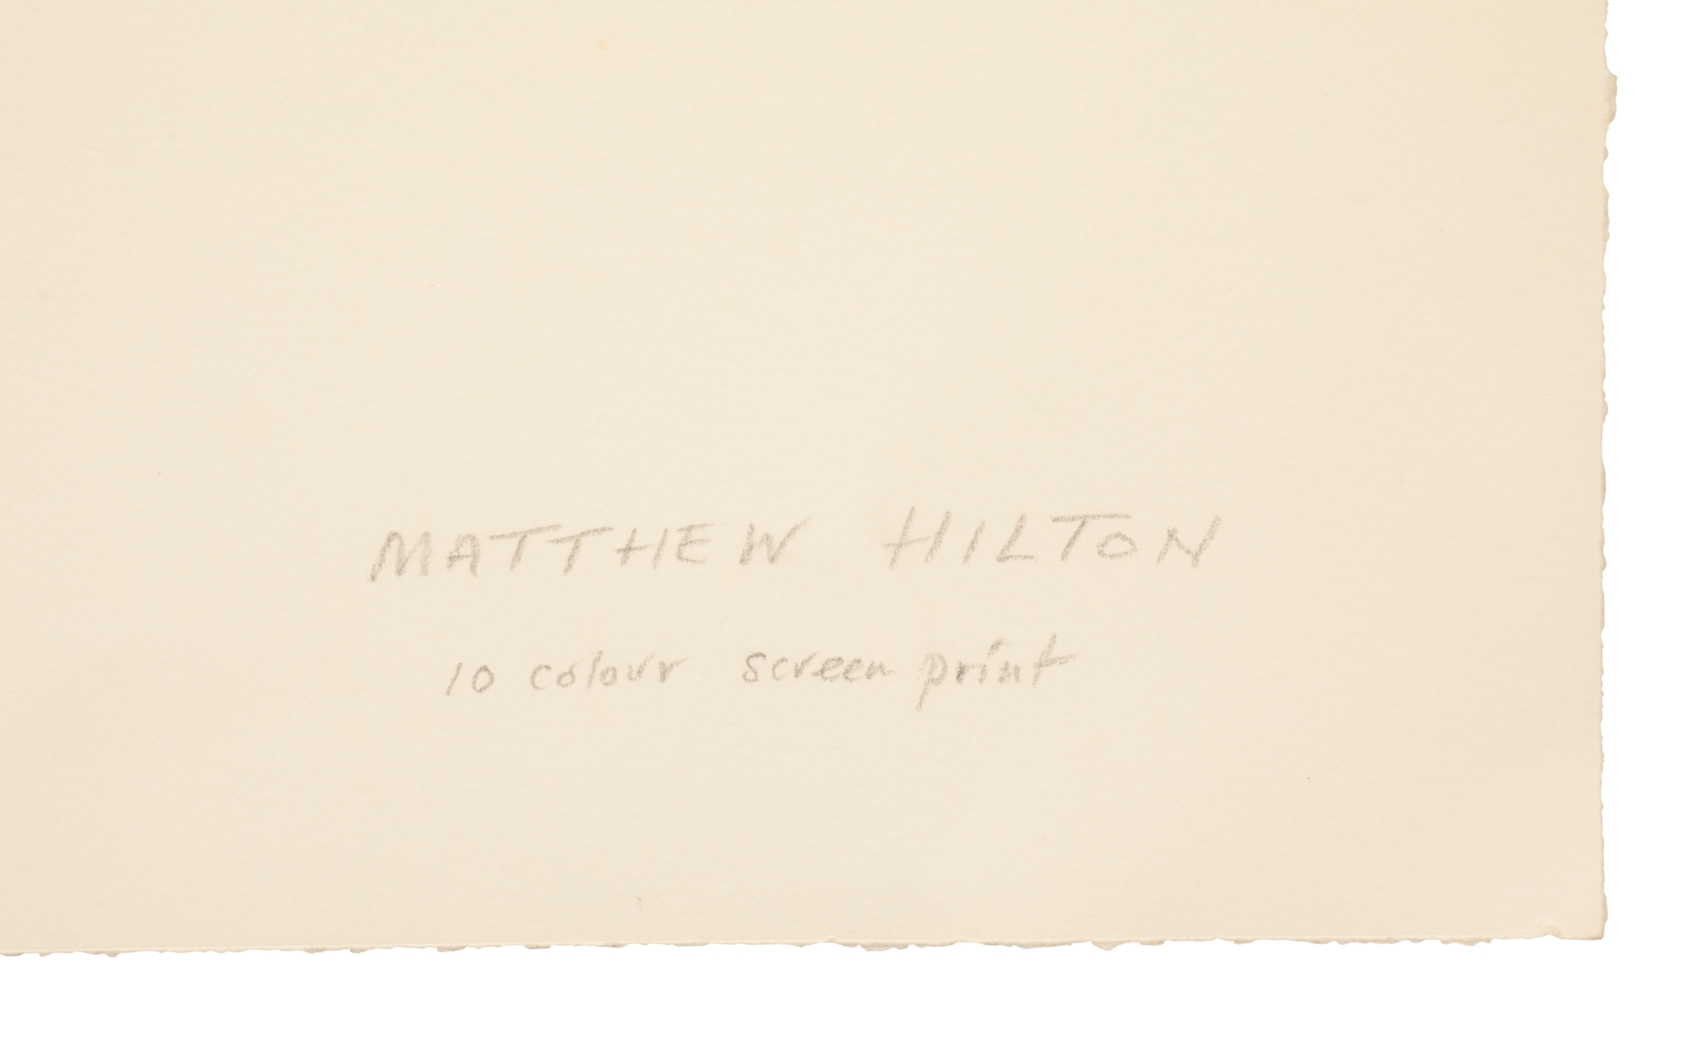 MATTHEW HILTON
10 colour screen print